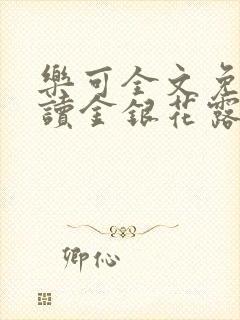 樂可全文免
讀金銀花露
卿伈